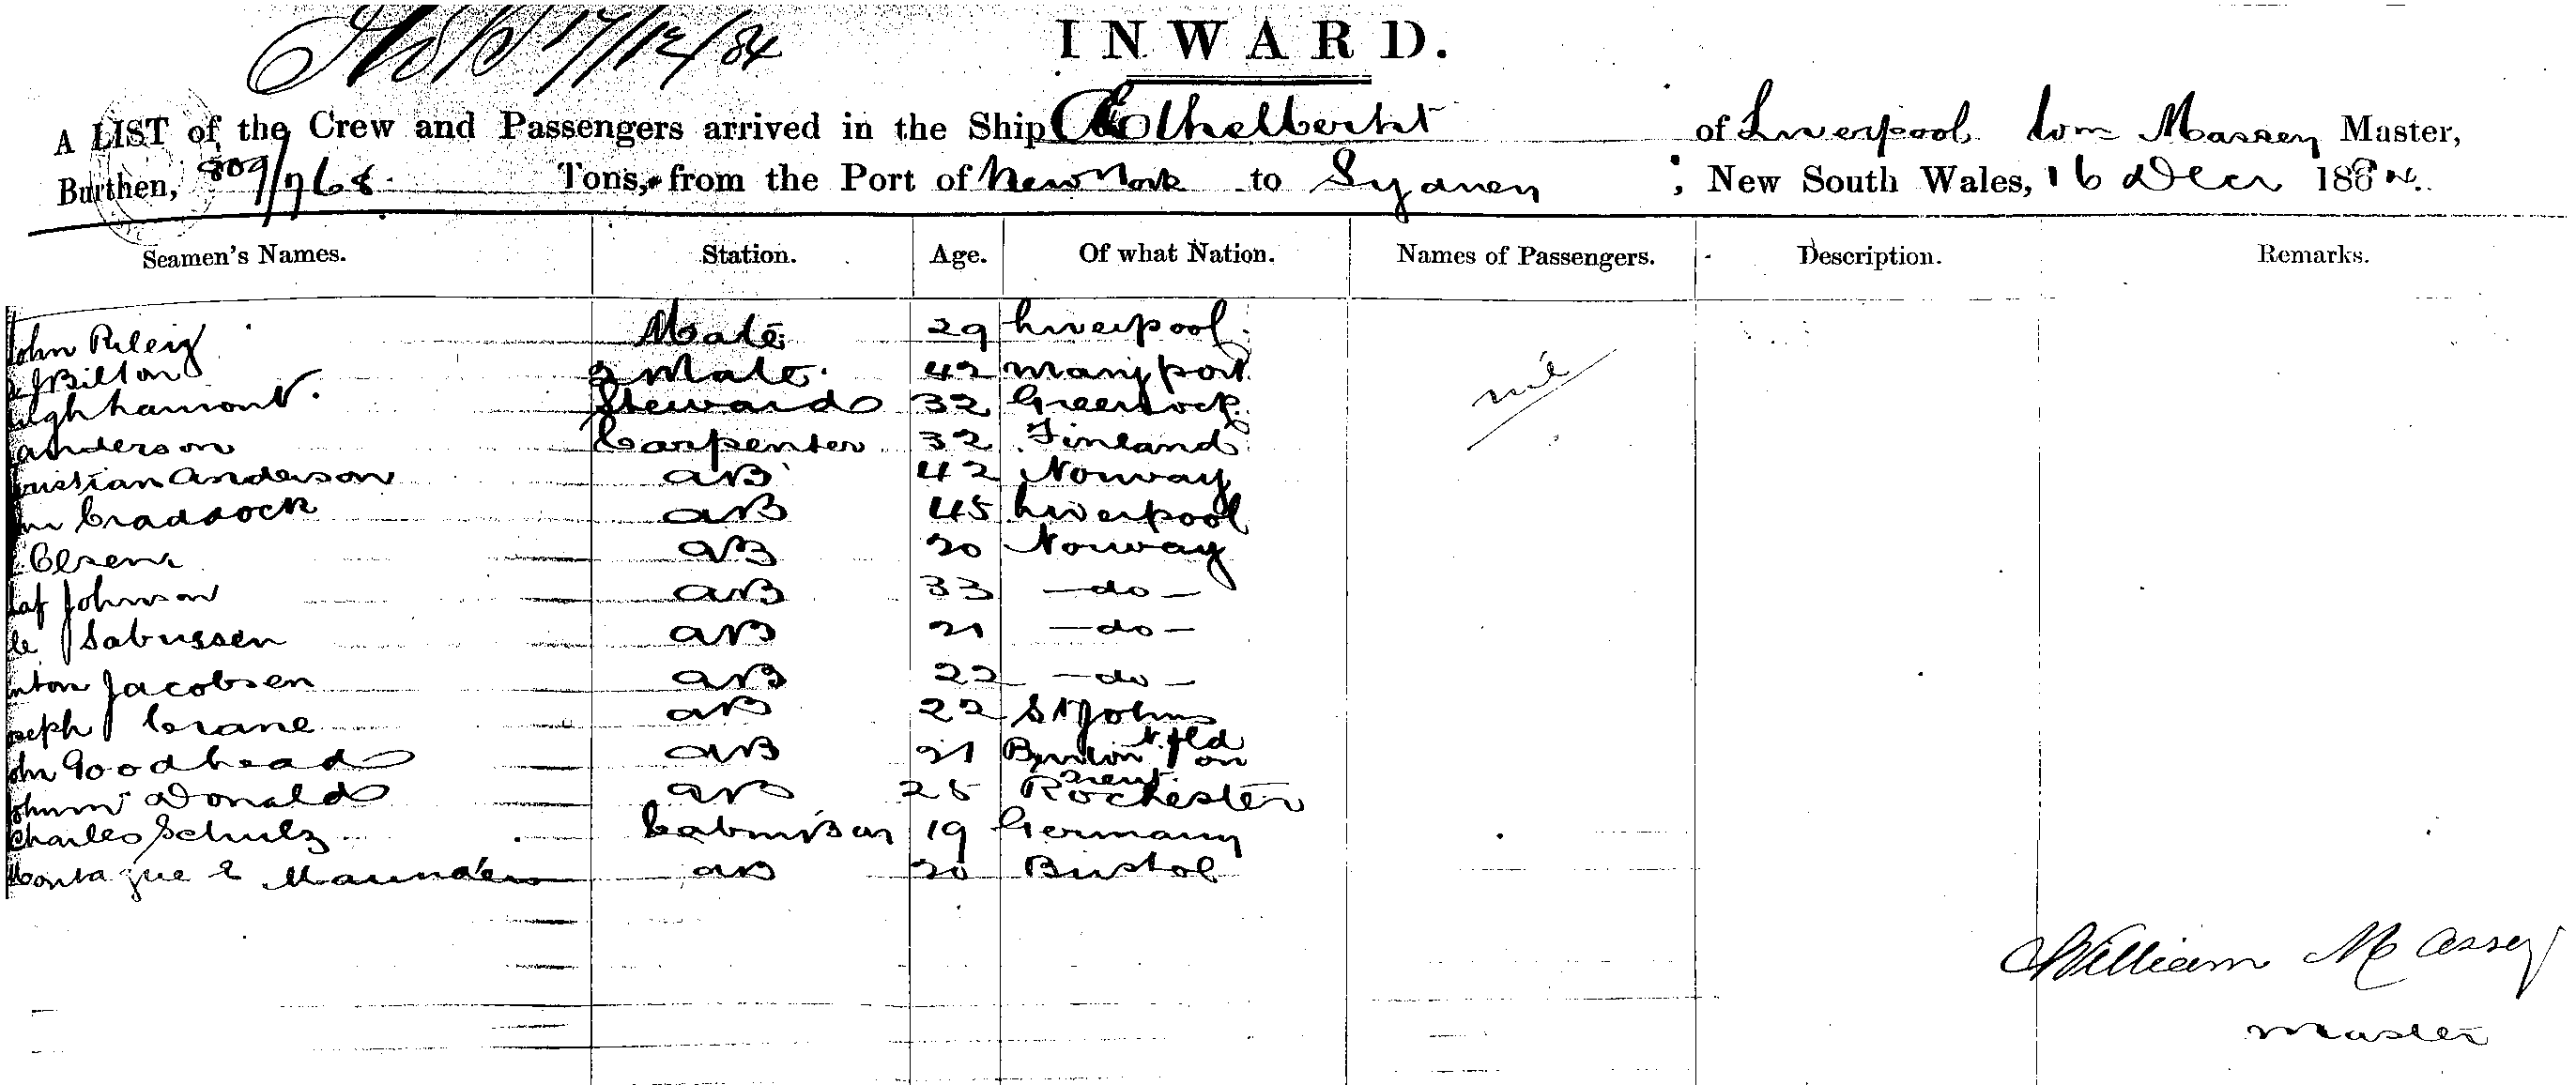 17/12/84
INWARD.
A LIST of the Crew and Passengers arrived in the Ship Ethelbert of Liverpool Wm Massey Master,
Burthen, 809/768 Tons, from the Port of New York to Sydney ; New South Wales, 16 Decr 1884.
Seamen's Names. Station. Age. Of what Nation. Names of Passengers. Description. Remarks.
John Riley Mate 29 Liverpool nil
Bilton 2 Mate 42 Maryport
Steward 32 Greenock
Anderson Carpenter 32 Finland
ristian Anderson AB 42 Norway
m Craddock AB 45 Liverpool
Olsen AB 20 Norway
laf Johnson AB 33 -do-
le Sabussen AB 21 -do-
nton Jacobsen AB 22 -do-
oseph Crane AB 22 St Johns N.fld
ohn Goodhead AB 21 Burton on Trent
John Mc Donald AB 25 Rochester
Charles Schulz Cabin Boy 19 Germany
Montague E Maunders AB 20 Bristol
William Massey
Master